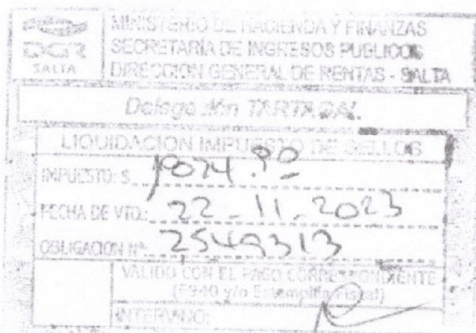 DGR
SALTA
MINISTERIO DE HACIENDA Y FINANZAS
SECRETARÍA DE INGRESOS PUBLICOS
DIRECCION GENERAL DE RENTAS - SALTA
Delegación TARTAGAL
LIQUIDACION IMPUESTO DE SELLOS
IMPUESTO: $
FECHA DE VTO.: 22-11-2023
OBLIGACION Nº: 2549313
VALIDO CON EL PAGO CORRESPONDIENTE
(F940 y/o Estampilla Fiscal)
INTERVINO: